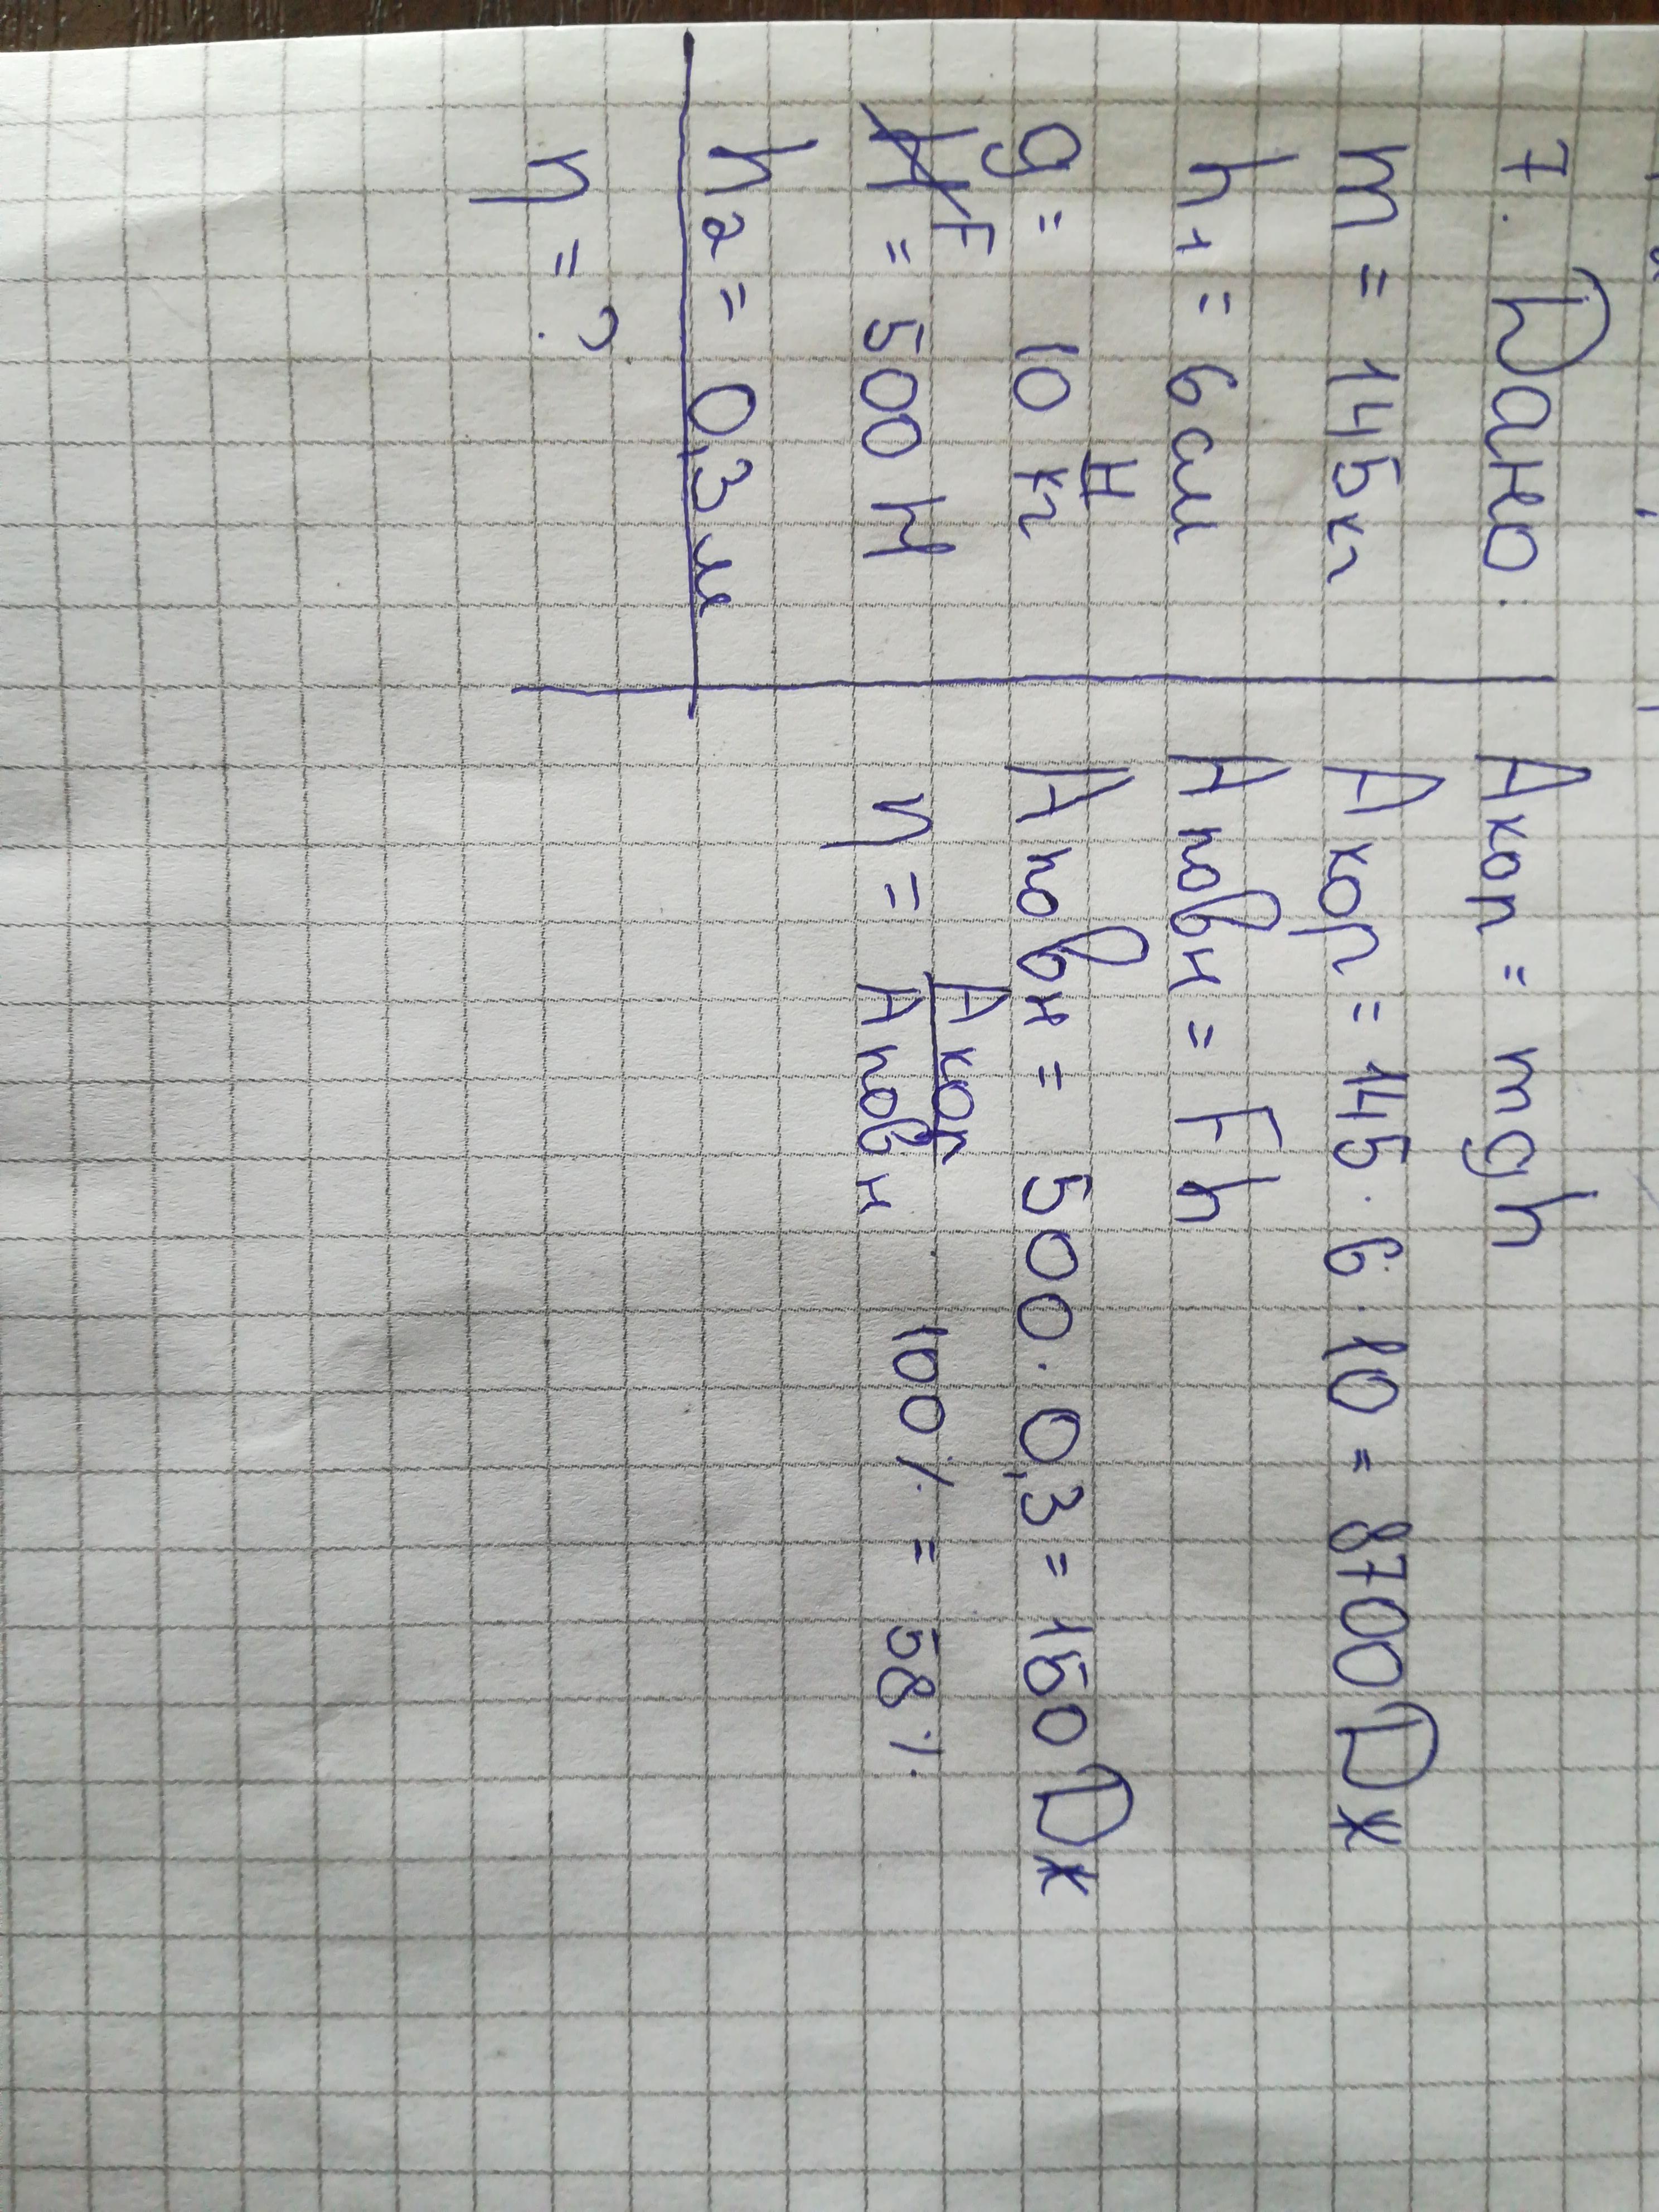 7. Дано:
m = 145 кг
h₁ = 6 см
g = 10 Н/кг
F = 500 Н
h₂ = 0,3 м
η = ?
A кор = mgh
A кор = 145 · 6 · 10 = 8700 Дж
A повн = Fh
A повн = 500 · 0,3 = 150 Дж
η = A кор / A повн 100% = 58%